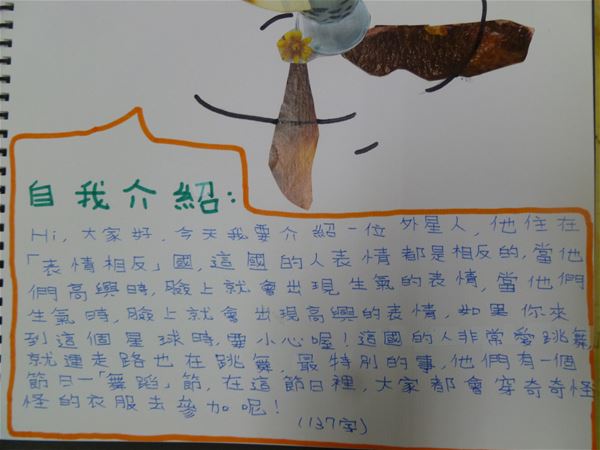 自我介紹:
Hi,大家好,今天我要介紹一位外星人,他住在
「表情相反」國,這國的人表情都是相反的,當他
們高興時,臉上就會出現生氣的表情,當他們
生氣時,臉上就會出現高興的表情,如果你來
到這個星球時,要小心喔!這國的人非常愛跳舞,
就連走路也在跳舞,最特別的事,他們有一個
節日—「舞蹈」節,在這節日裡,大家都會穿奇奇怪
怪的衣服去參加呢!
(137字)